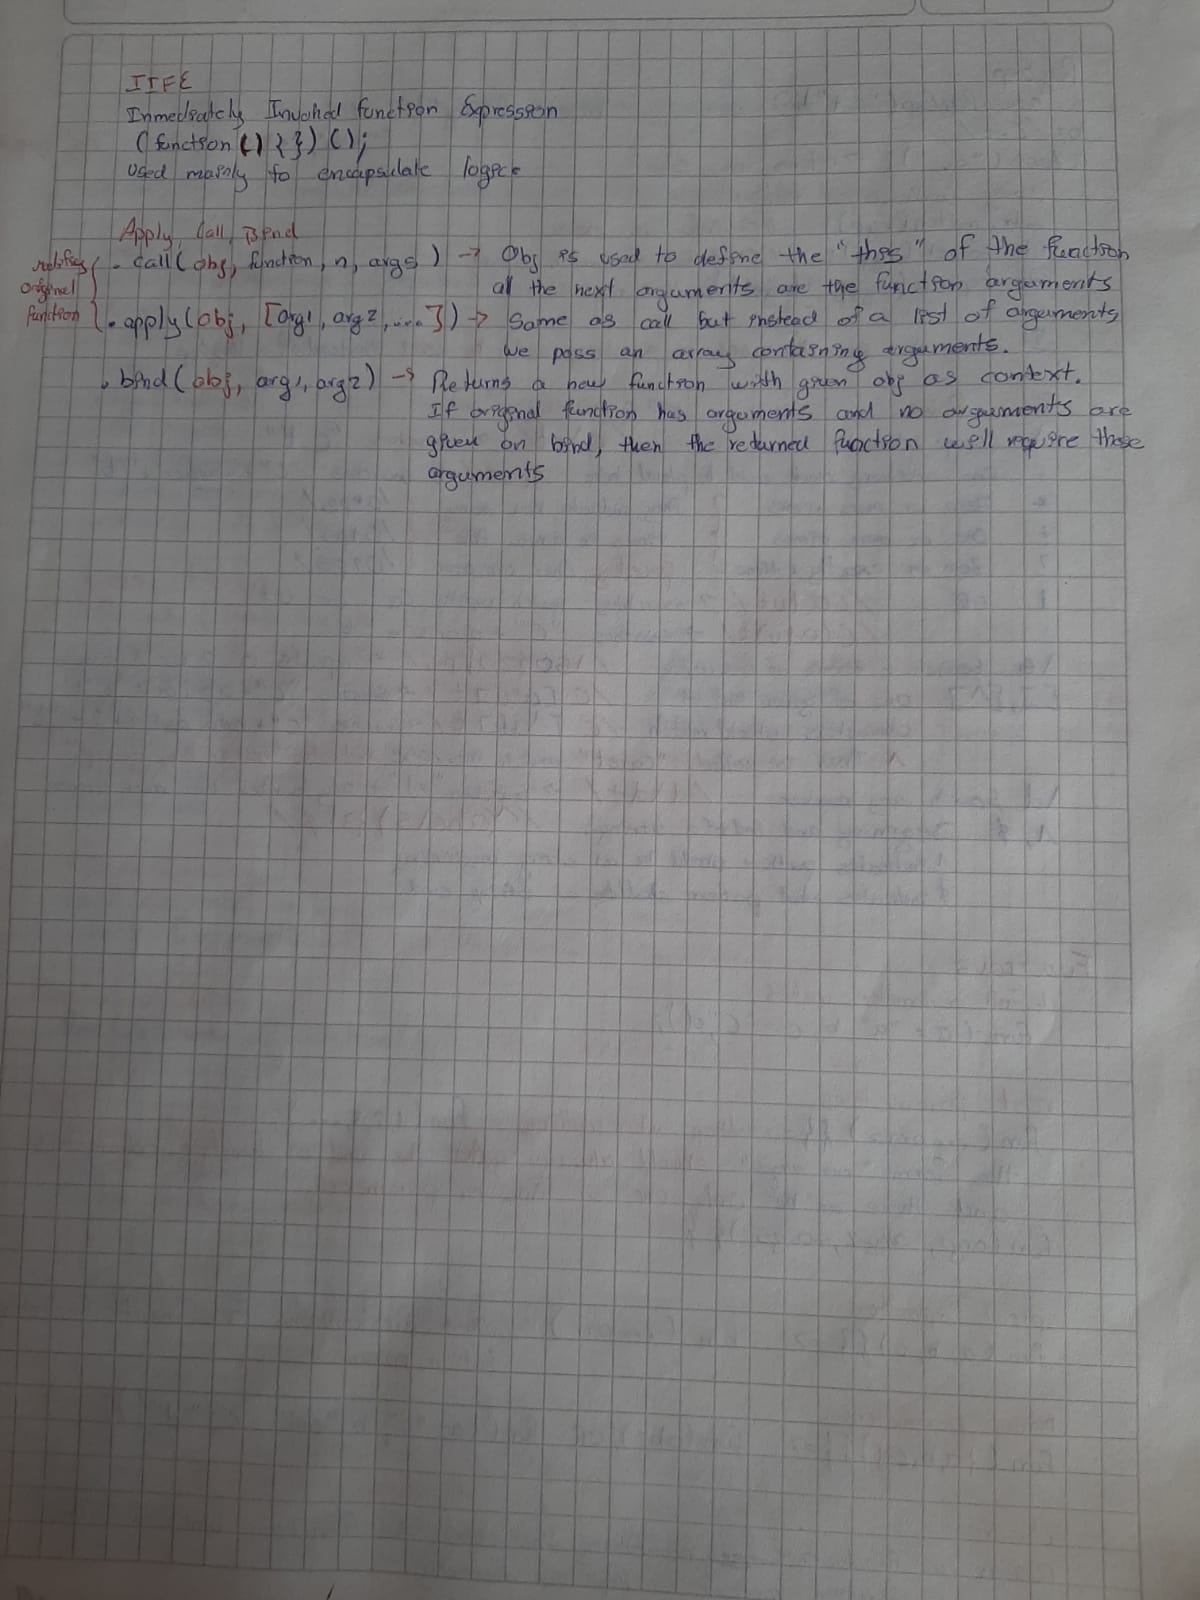 IIFE
Inmediately Invoked function Expression
(function () { }) ();
Used mainly to encapsulate logic
Apply, Call, Bind
. call( obj, function, n, args ) → Obj is used to define the "this" of the function
all the next arguments are the function arguments
modifies original function
. apply( obj, [arg1, arg2, ... ]) → Same as call but instead of a list of arguments
we pass an array containing arguments.
. bind( obj, arg1, arg2) → Returns a new function with given obj as context.
If original function has arguments and no arguments are
given on bind, then the returned function will require those
arguments